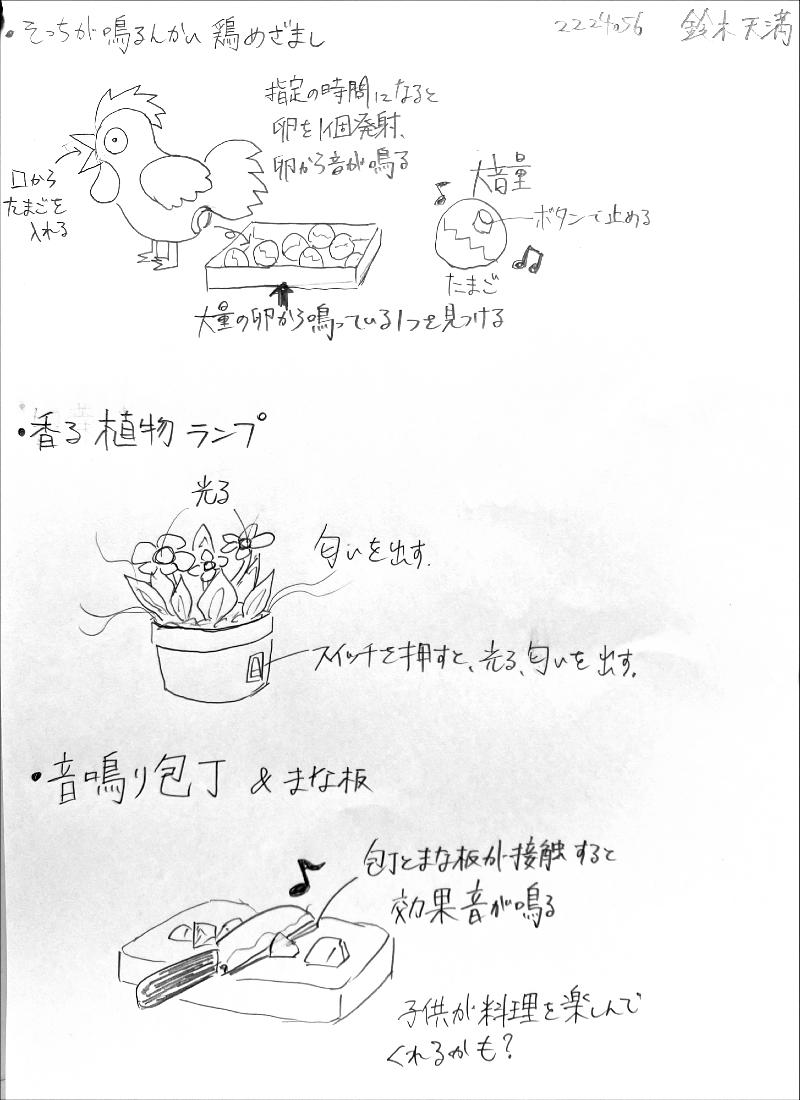 2224056 鈴木天満
・そっちが鳴るんかい 鶏めざまし
指定の時間になると
卵を1個発射、
卵から音が鳴る
口から
たまごを
入れる
大音量
ボタンで止める
たまご
大量の卵から鳴っている1つを見つける
・香る植物ランプ
光る
匂いを出す.
スイッチを押すと、光る、匂いを出す。
・音鳴り包丁 & まな板
包丁とまな板が接触すると
効果音が鳴る
子供が料理を楽しんで
くれるかも?